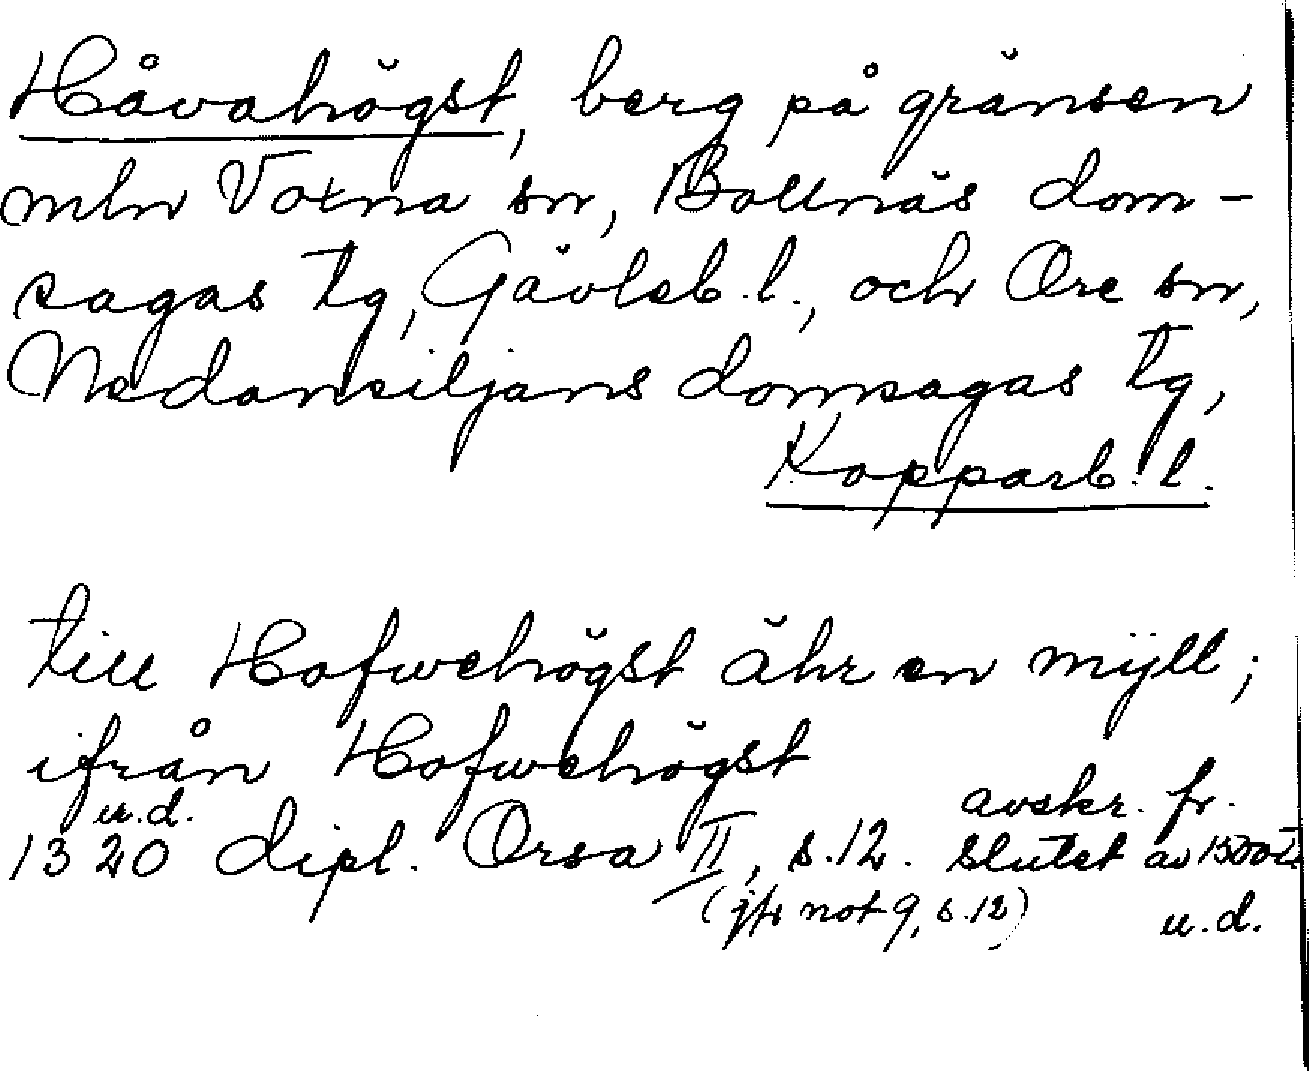 Håvahögst, berg på gränsen
mln Voxna sn, Bollnäs dom-
sagas tg, Gävleb. l., och Ore sn,
Nedansiljans domsagas tg,
Kopparb. l.
till Hofwehögst ähr en mÿll;
ifrån Hofwehögst
u.d.
1320 dipl. Orsa II, s.12. avskr. fr.
slutet av 1500-t
(jfr not 9, s.12) u.d.